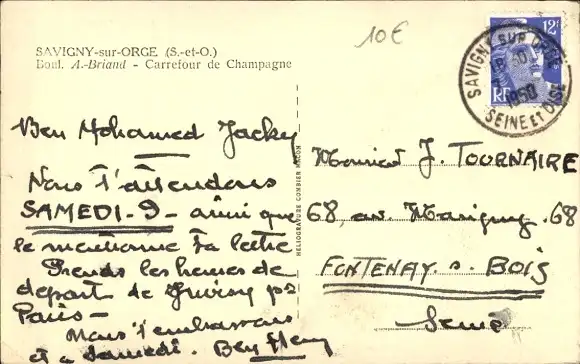 SAVIGNY-sur-ORGE (S.-et-O.)
Boul. A.-Briand - Carrefour de Champagne
10€
12F
RF
SAVIGNY SUR ORGE
1950
SEINE ET OISE
Ben Mohamed Jacky
Nous t'attendons
SAMEDI-9- ainsi que
le mentionne ta lettre
Prends les heures de
départ de Juvisy pr
Paris-
Nous t'embrassons
et à samedi. Ben
HELIOGRAVURE COMBIER MACON
Monsieur J. TOURNAIRE
68, av. Marigny. 68
FONTENAY. s. BOIS
Seine